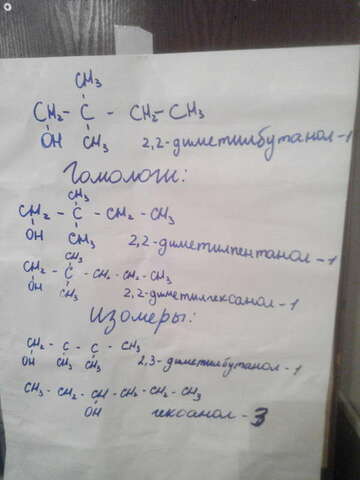 CH₃
CH₂ - C - CH₂ - CH₃
OH CH₃
2,2-диметилбутанол-1
Гомологи:
CH₃
CH₂ - C - CH₂ - CH₃
OH CH₃
2,2-диметилпентанол-1
CH₃
CH₂ - C - CH₂ - CH₂ - CH₃
OH CH₃
2,2-диметилгексанол-1
Изомеры:
CH₂ - C - C - CH₃
OH CH₃ CH₃
2,3-диметилбутанол-1
CH₃ - CH₂ - CH - CH₂ - CH₂ - CH₃
OH
гексанол-3